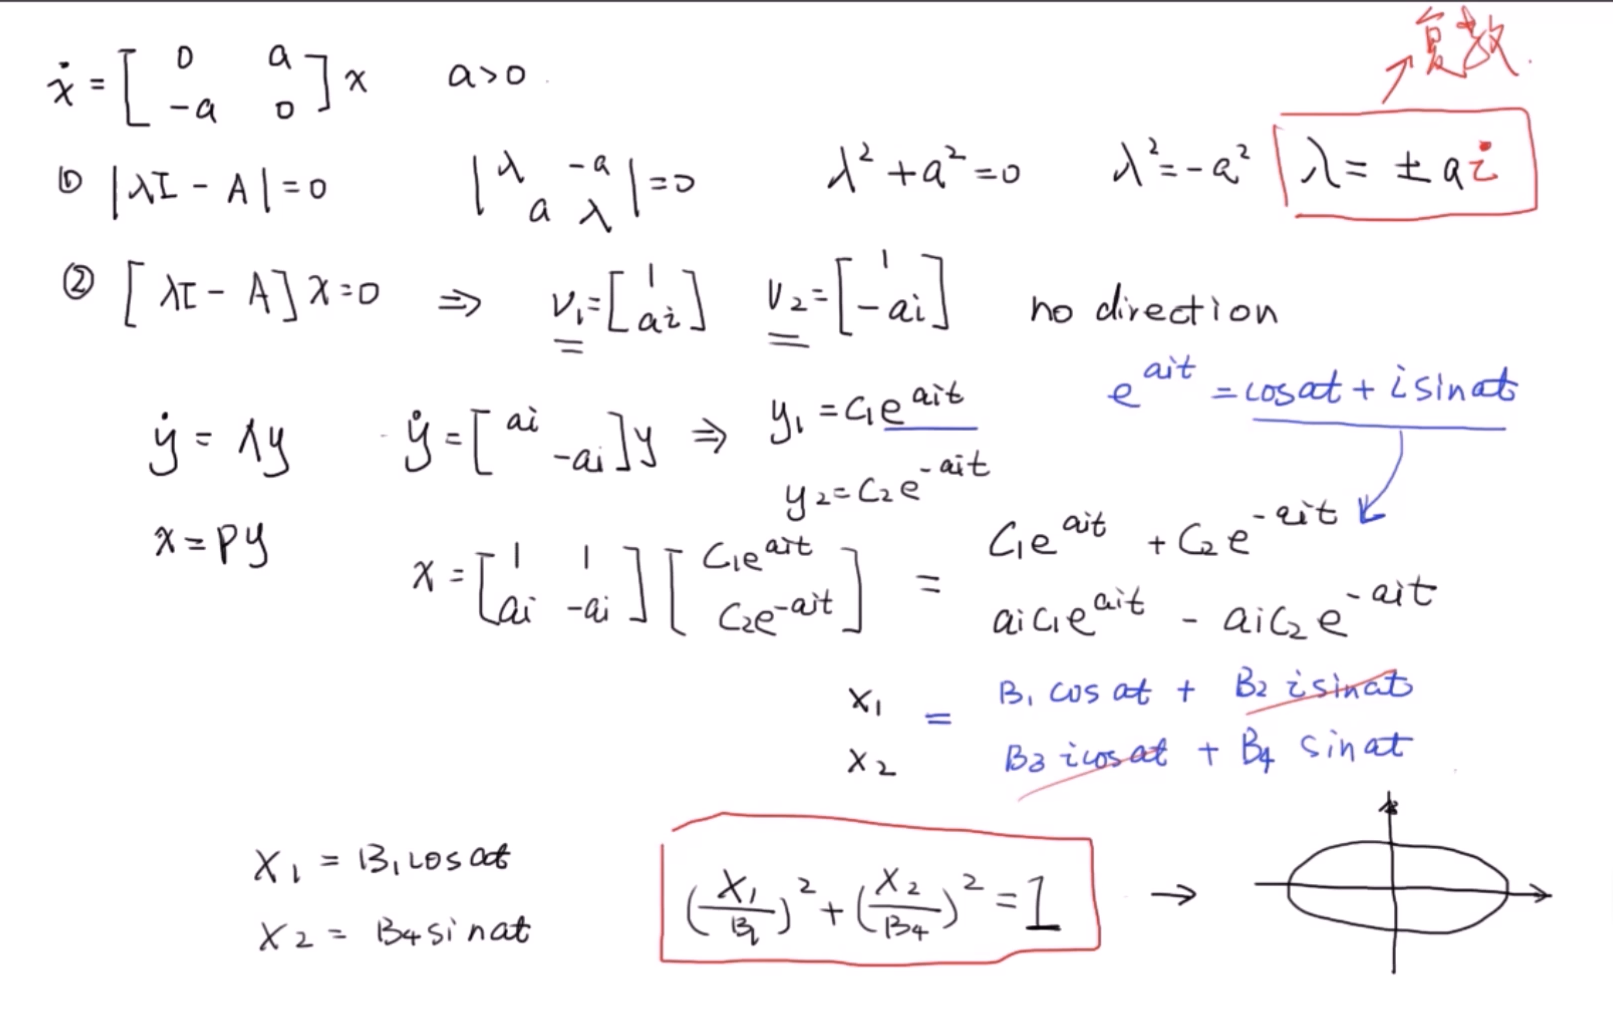 复数.
ẋ = [0 a; -a 0] x a>0
① |λI - A|=0 |λ -a; a λ|=0 λ²+a²=0 λ²=-a² λ= ±ai
② [λI - A]x=0 ⇒ V₁=[1; ai] V₂=[1; -ai] no direction
e^{ait} = cosat + isinat
ẏ = Λy ẏ=[ai; -ai]y ⇒ y₁ = C₁e^{ait}
y₂=C₂e^{-ait}
x=Py x=[1 1; ai -ai][C₁e^{ait}; C₂e^{-ait}] = C₁e^{ait} + C₂e^{-ait}
aiC₁e^{ait} - aiC₂e^{-ait}
x₁ = B₁ cosat + B₂ isinat
x₂ B₃ icosat + B₄ sinat
x₁ = B₁cosat
x₂ = B₄sinat
(x₁/B₁)²+(x₂/B₄)²=1 →